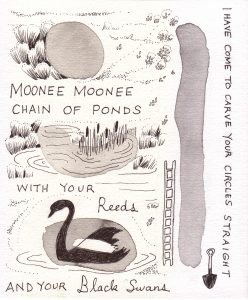 MOONEE MOONEE
CHAIN OF PONDS
WITH YOUR
Reeds
AND YOUR Black Swans
I HAVE COME TO CARVE YOUR CIRCLES STRAIGHT